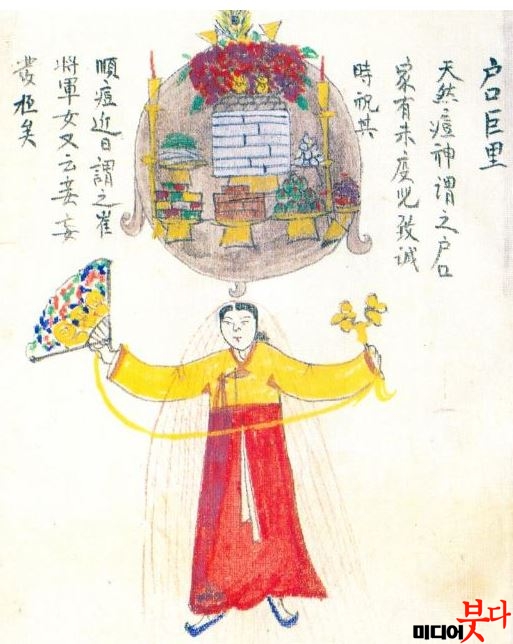 户口巨里
天然痘神謂之户口
家有未度兒致誠
時祝其
順痘近日謂之崔
將軍女又云妾妄
發極矣
미디어붓다